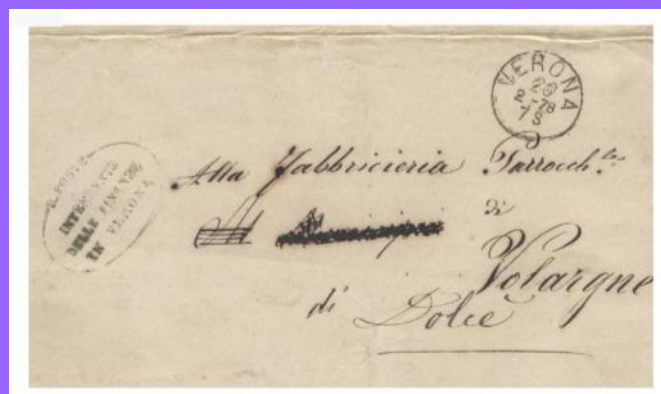 VERONA
29
2-78
7 S
R. POSTE
INTENDENTE
DELLE FINANZE
IN VERONA
Alla Fabbricieria Parrocch.le
Al
di
Volargne
di Dolce